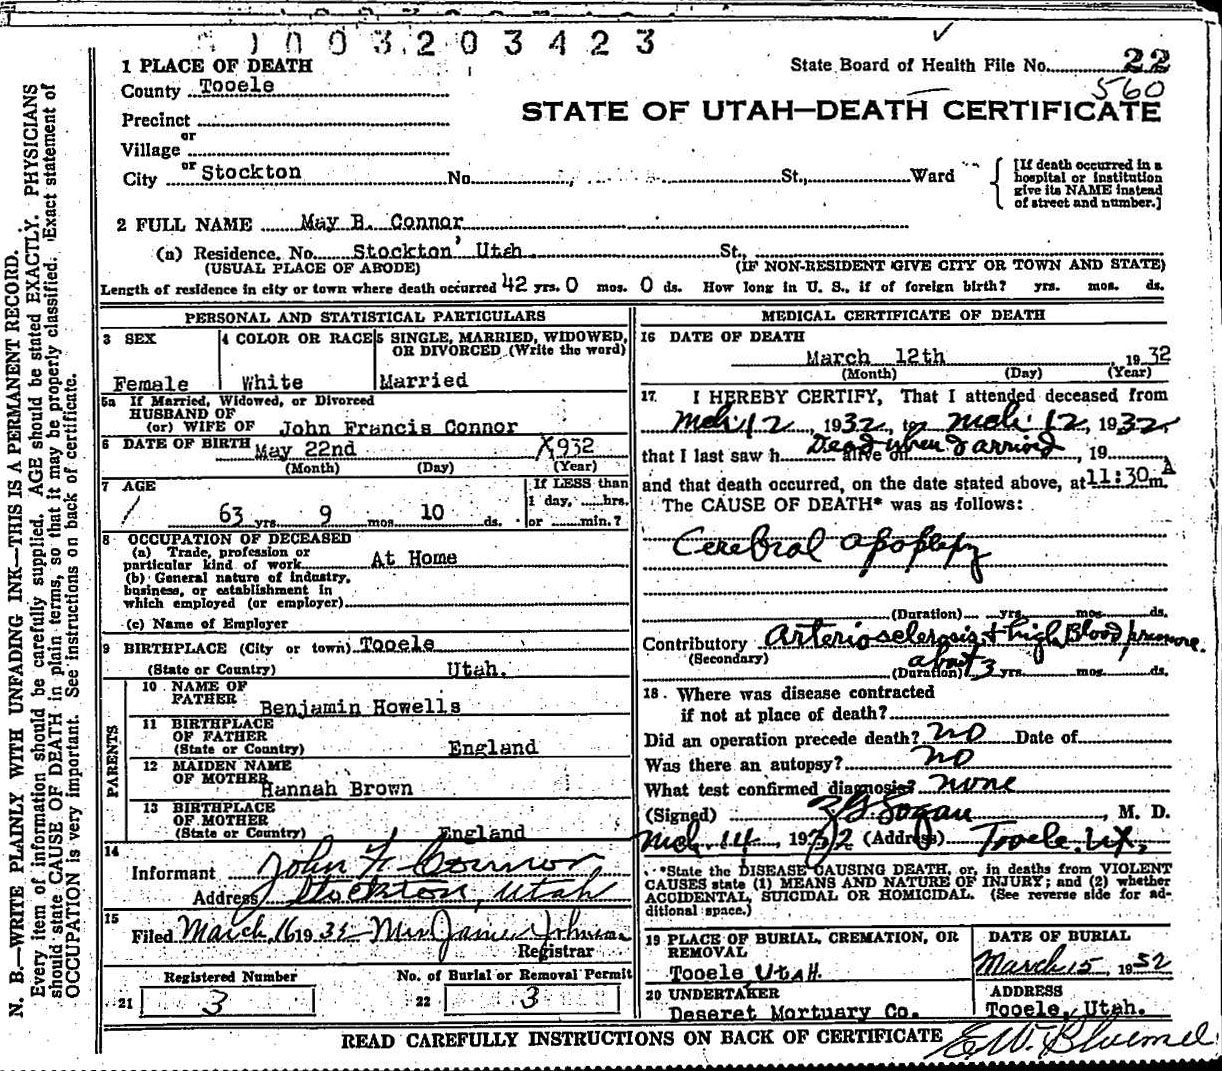 1003203423
1 PLACE OF DEATH
State Board of Health File No. 22
560
County Tooele
STATE OF UTAH—DEATH CERTIFICATE
Precinct
or
Village
or
City Stockton No. St., Ward
[If death occurred in a hospital or institution give its NAME instead of street and number.]
2 FULL NAME May B. Connor
(a) Residence. No. Stockton, Utah St.,
(USUAL PLACE OF ABODE) (IF NON-RESIDENT GIVE CITY OR TOWN AND STATE)
Length of residence in city or town where death occurred 42 yrs. 0 mos. 0 ds. How long in U. S., if of foreign birth? yrs. mos. ds.
PERSONAL AND STATISTICAL PARTICULARS
3 SEX 4 COLOR OR RACE 5 SINGLE, MARRIED, WIDOWED,
OR DIVORCED (Write the word)
Female White Married
5a If Married, Widowed, or Divorced
HUSBAND OF
(or) WIFE OF John Francis Connor
6 DATE OF BIRTH May 22nd 1932
(Month) (Day) (Year)
7 AGE If LESS than
1 day, hrs.
63 yrs. 9 mos. 10 ds. or min.?
8 OCCUPATION OF DECEASED
(a) Trade, profession or
particular kind of work At Home
(b) General nature of industry,
business, or establishment in
which employed (or employer)
(c) Name of Employer
9 BIRTHPLACE (City or town) Tooele
(State or Country) Utah.
PARENTS
10 NAME OF
FATHER Benjamin Howells
11 BIRTHPLACE
OF FATHER
(State or Country) England
12 MAIDEN NAME
OF MOTHER Hannah Brown
13 BIRTHPLACE
OF MOTHER
(State or Country) England
14
Informant John F. Connor
Address Stockton, Utah
15
Filed March 16 1932 Mrs Janie Johnson
Registrar
Registered Number No. of Burial or Removal Permit
21 3 22 3
MEDICAL CERTIFICATE OF DEATH
16 DATE OF DEATH
March 12th, 1932
(Month) (Day) (Year)
17 I HEREBY CERTIFY, That I attended deceased from
Mch 12, 1932, to Mch 12, 1932,
that I last saw h alive on Dead when I arrived, 19
and that death occurred, on the date stated above, at 11:30 A m.
The CAUSE OF DEATH* was as follows:
Cerebral apoplexy
(Duration) yrs. mos. ds.
Contributory Arteriosclerosis + high Blood pressure.
(Secondary)
(Duration) about 3 yrs. mos. ds.
18. Where was disease contracted
if not at place of death?
Did an operation precede death? no Date of
Was there an autopsy? no
What test confirmed diagnosis? none
(Signed) , M. D.
Mch. 14, 1932 (Address) Tooele. Ut.
*State the DISEASE CAUSING DEATH, or, in deaths from VIOLENT
CAUSES state (1) MEANS AND NATURE OF INJURY; and (2) whether
ACCIDENTAL, SUICIDAL OR HOMICIDAL. (See reverse side for ad-
ditional space.)
19 PLACE OF BURIAL, CREMATION, OR
REMOVAL
Tooele, UTAH.
DATE OF BURIAL
March 15, 1932
20 UNDERTAKER
Deseret Mortuary Co.
ADDRESS
Tooele, Utah.
READ CAREFULLY INSTRUCTIONS ON BACK OF CERTIFICATE
E.W. Bluemel
N. B.—WRITE PLAINLY WITH UNFADING INK—THIS IS A PERMANENT RECORD.
Every item of information should be carefully supplied. AGE should be stated EXACTLY. PHYSICIANS
should state CAUSE OF DEATH in plain terms, so that it may be properly classified. Exact statement of
OCCUPATION is very important. See instructions on back of certificate.